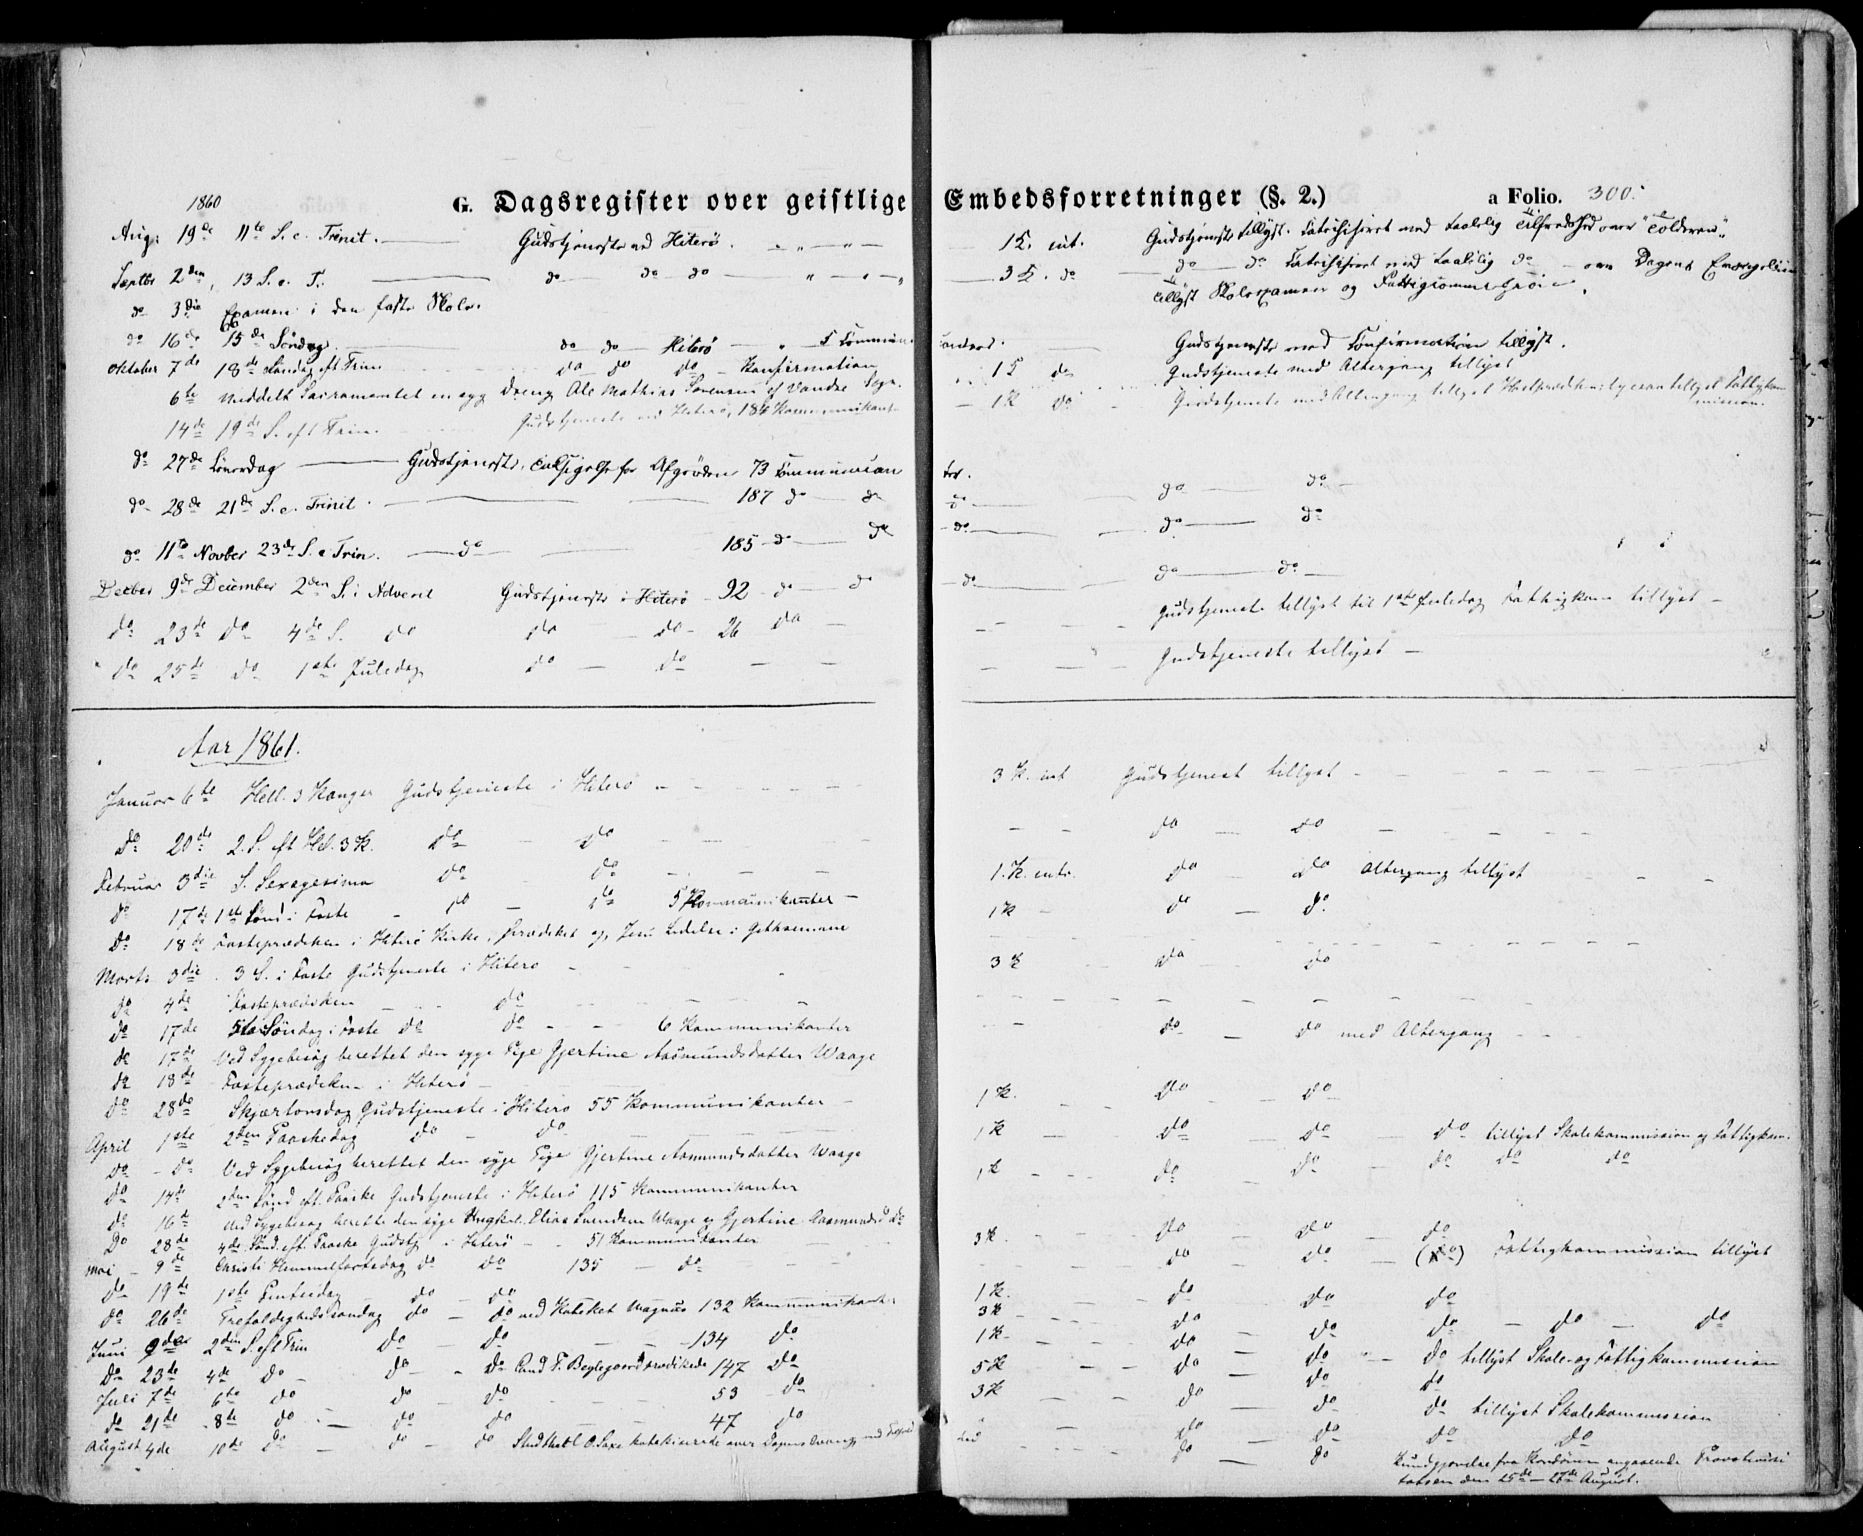 1860
G. Dagsregister over geistlige Embedsforretninger (§. 2.) a Folio. 300.
Aug: 19de 11te S. e. Trinit. Gudstjeneste ved Hiterø.
Septbr 2den, 13 S. e. T. do do do
do 3die Examen i den faste Skole.
do 16de 15de Søndag do do Hiterø
Oktober 7de 18de Søndag eft Trin do do do Konfirmation
6te meddelt Sacramentet en syg Dreng Ole Mathias Sørensen af Vandsø Sogn.
14de 19de S. eft Trin. Gudstjeneste ved Hiterø, 184 Kommunikant
do 27de Løverdag Gudstjeneste, Taksigelse for Afgrøden 73 Communican
do 28de 21de S. e. Trinit. 187 do do
do 11te Novber 23de S. e Trin. do 185 do do
Decber 9de December 2den S. i Advent Gudstjeneste i Hiterø 92 do do
do 23de do 4de S. do do do 26 do
do 25de do 1ste Juledag do do
Aar 1861.
Januar 6te Hell. 3 Konger Gudstjeneste i Hiterø
do 20de 2. S. eft Hel. 3 K. do do
Februar 3die S. Sexagesima do do
do 17de 1ste Sønd i Faste do do 5 Kommunikanter
do 18de Fasteprædiken i Hiterø Kirke, prædiket og Jesu Lidelse i Gethsemane
Marts 3die 3 S. i Faste Gudstjeneste i Hiterø
do 4de Fasteprædiken do
do 17de 5te Søndag i Faste do do 6 Kommunikanter
do 17de Ved Sygebesøg berettet den syge Pige Gjertine Aasmundsdatter Waage
do 18de Fasteprædiken i Hiterø
do 28de Skjærtorsdag Gudstjeneste i Hiterø 55 Kommunikanter
April 1ste 2den Paaskedag do do
do do Ved Sygebesøg berettet den syge Pige Gjertine Aasmundsdatter Waage
do 14de 2den Sønd eft. Paaske Gudstjeneste i Hiterø 115 Kommunikanter
do 16de Ved Sygebesøg berettet den syge Ungkel. Elias Svendsen Waage og Gjertine Aasmundsd do
do 28de 4de Sønd. eft. Paaske Gudstj i Hiterø 51 Kommunikanter
Mai 9de Christi Himmelfartsdag do do 135 do
do 19de 1ste Pintsedag do do
do 26de Trefoldighedssøndag do do ved Kateket Magnus 132 Kommunikanter
Juni 9de 2den S. eft Trin do do 134 do
do 23de 4de do do do Cand F. prædikede 147 do
Juli 7de 6te do do do 53 do
do 21de 8de do do do 47 do
August 4de 10de do do do Stud theol O. Saxe katekiserede over Dagens Evang.
1 K. int. Gudstjeneste tillyst. Catechiseret med taalelig Tilfredshed over "Tolderen"
3 K. do do do Catechiseret med taalelig do over Dagens Evangelium
tillyst Skoleexamen og Fattigcommission.
Gudstjeneste med Confirmation tillyst.
1 K do Gudstjeneste med Altergang tillyst
1 K do Gudstjeneste med Altergang tillyst Høstprædiken ligesaa tillyst Fattigkom
mission.
ter.
do do do
do do do
do do do
Gudstjeneste tillyst til 1ste Juledag Fattigkom tillyst
Gudstjeneste tillyst
3 K. int Gudstjenest tillyst
do do
1. K. intr. do do Altergang tillyst
1 K do do
3 K do do
do do med Altergang
1 K. do do
1 K do do do tillyst Skolekommission og Fattigkom.
1 K do do do do do
3 K. do do do
do do (do) Fattigkommission tillyst
1 K. do do do
3 K do do do do do
1 K. do do do tillyst Skole- og Fattigkommission
5 K do do do
3 K do do do tillyst Skolekommission
do do do do
do do Kundgjørelse fra Kordøren angaaende Provstevisi
tatsen den 25de - 26de August.